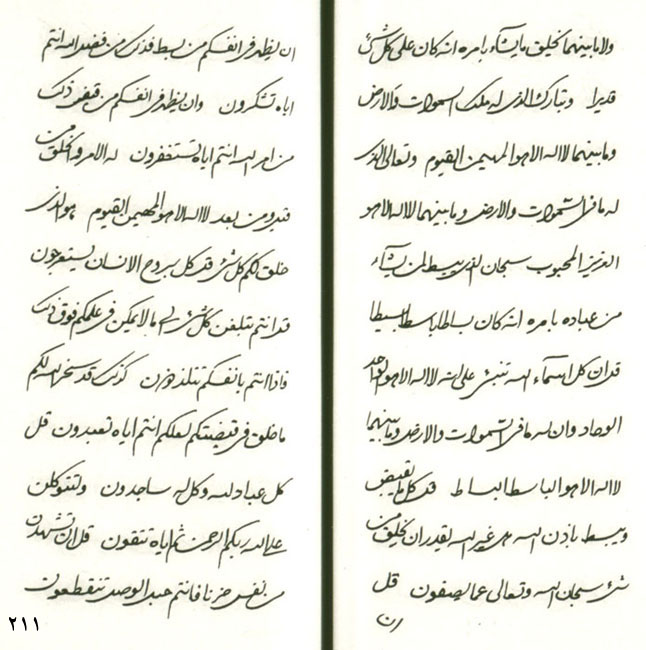 ولا ما بينهما يخلق ما يشآء بامره انه كان على كل شئ
قديرا وتبارك الذى له ملك السموات والارض
وما بينهما لا اله الا هو المهيمن القيوم وتعالى الذى
له ما فى السموات والارض وما بينهما لا اله الا هو
العزيز المحبوب سبحان الذى يبسط لمن يشآء
من عباده بامره انه كان بساطا باسطا بسيطا
قل ان كل اسمآء الله تنبئ على انه لا اله الا هو الواحد
الوحاد وان له ما فى السموات والارض وما بينهما
لا اله الا هو الباسط البساط قل كل ما يقبض
ويبسط باذن الله هل غير الله يقدر ان يخلق من
شئ سبحان الله وتعالى عما يصفون قل
ان
ان يظهر فى انفسكم من بسط فذلك من فضل الله انتم
اياه تشكرون وان يظهر فى انفسكم من قبض ذلك
من امر الله انتم اياه تستغفرون له الامر والخلق من
قبل ومن بعد لا اله الا هو المهيمن القيوم هو الذى
خلق لكم كل شئ قل كل بروح الانسان يستعرجون
قل انتم تبلغن كل شئ الى ما لا يمكن فى علمكم فوق ذلك
فاذا انتم بانفسكم تتلذذون كذلك قد سخر الله لكم
ما خلق فى قبضتكم لعلكم انتم اياه تعبدون قل
كل عباد لله وكل له ساجدون ولتتوكلن
على الله ربكم الرحمن ثم اياه تتقون قل ان تشهدن
من نفس حزنا فانتم حبل الوصل تنقطعون
٢١١